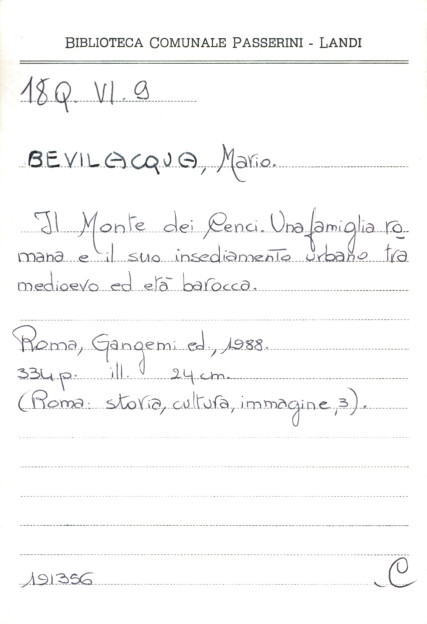 BIBLIOTECA COMUNALE PASSERINI - LANDI
18Q. VI. 9
BEVILACQUA, Mario.
Il Monte dei Cenci. Una famiglia ro-
mana e il suo insediamento urbano tra
medioevo ed età barocca.
Roma, Gangemi ed., 1988.
334 p. ill. 24 cm.
(Roma: storia, cultura, immagine, 3).
191356 C